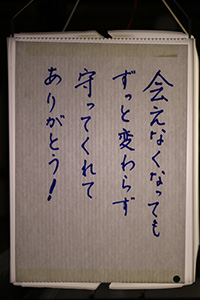 会えなくなっても
ずっと変わらず
守ってくれて
ありがとう！